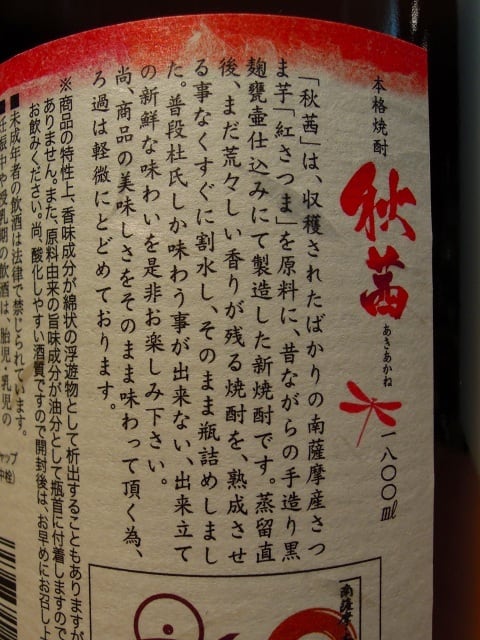 本格焼酎
秋茜
あきあかね
一八〇〇㎖
「秋茜」は、収穫されたばかりの南薩摩産さつ
ま芋「紅さつま」を原料に、昔ながらの手造り黒
麹甕壷仕込みにて製造した新焼酎です。蒸留直
後、まだ荒々しい香りが残る焼酎を、熟成させ
る事なくすぐに割水し、そのまま瓶詰めしまし
た。普段杜氏しか味わう事が出来ない、出来立て
の新鮮な味わいを是非お楽しみ下さい。
尚、商品の美味しさをそのまま味わって頂く為、
ろ過は軽微にとどめております。
※商品の特性上、香味成分が綿状の浮遊物として析出することもありますが
ありません。また、原料由来の旨味成分が油分として瓶首に付着しますので
お飲みください。尚、酸化しやすい酒質ですので開封後は、お早めにお召し上
■未成年者の飲酒は法律で禁じられています。
■妊娠中や授乳期の飲酒は、胎児・乳児の
ャップ
中栓)
南薩摩